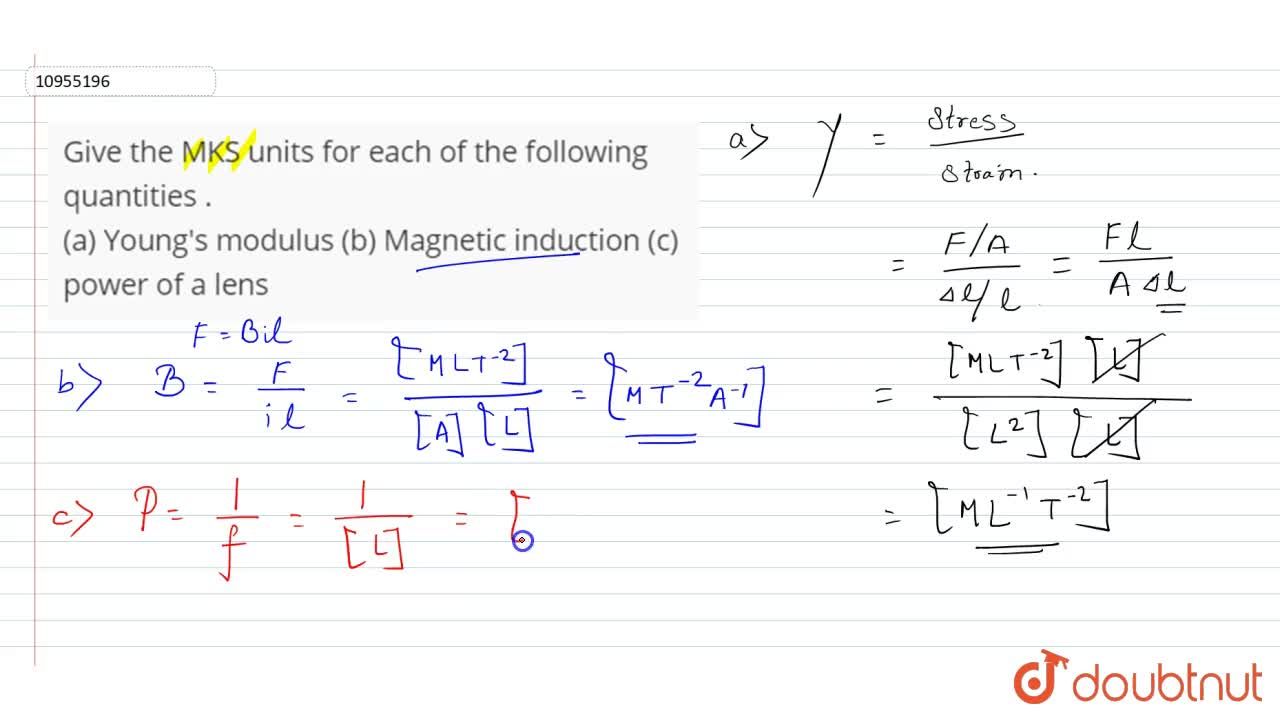 10955196
Give the MKS units for each of the following
quantities .
(a) Young's modulus (b) Magnetic induction (c)
power of a lens
a> Y = Stress / Strain.
= F/A / Δl/l = Fl / A Δl
= [MLT⁻²] [L] / [L²] [L]
= [ML⁻¹T⁻²]
F = Bil
b> B = F / il = [MLT⁻²] / [A] [L] = [MT⁻²A⁻¹]
c> P = 1 / f = 1 / [L] = [
doubtnut